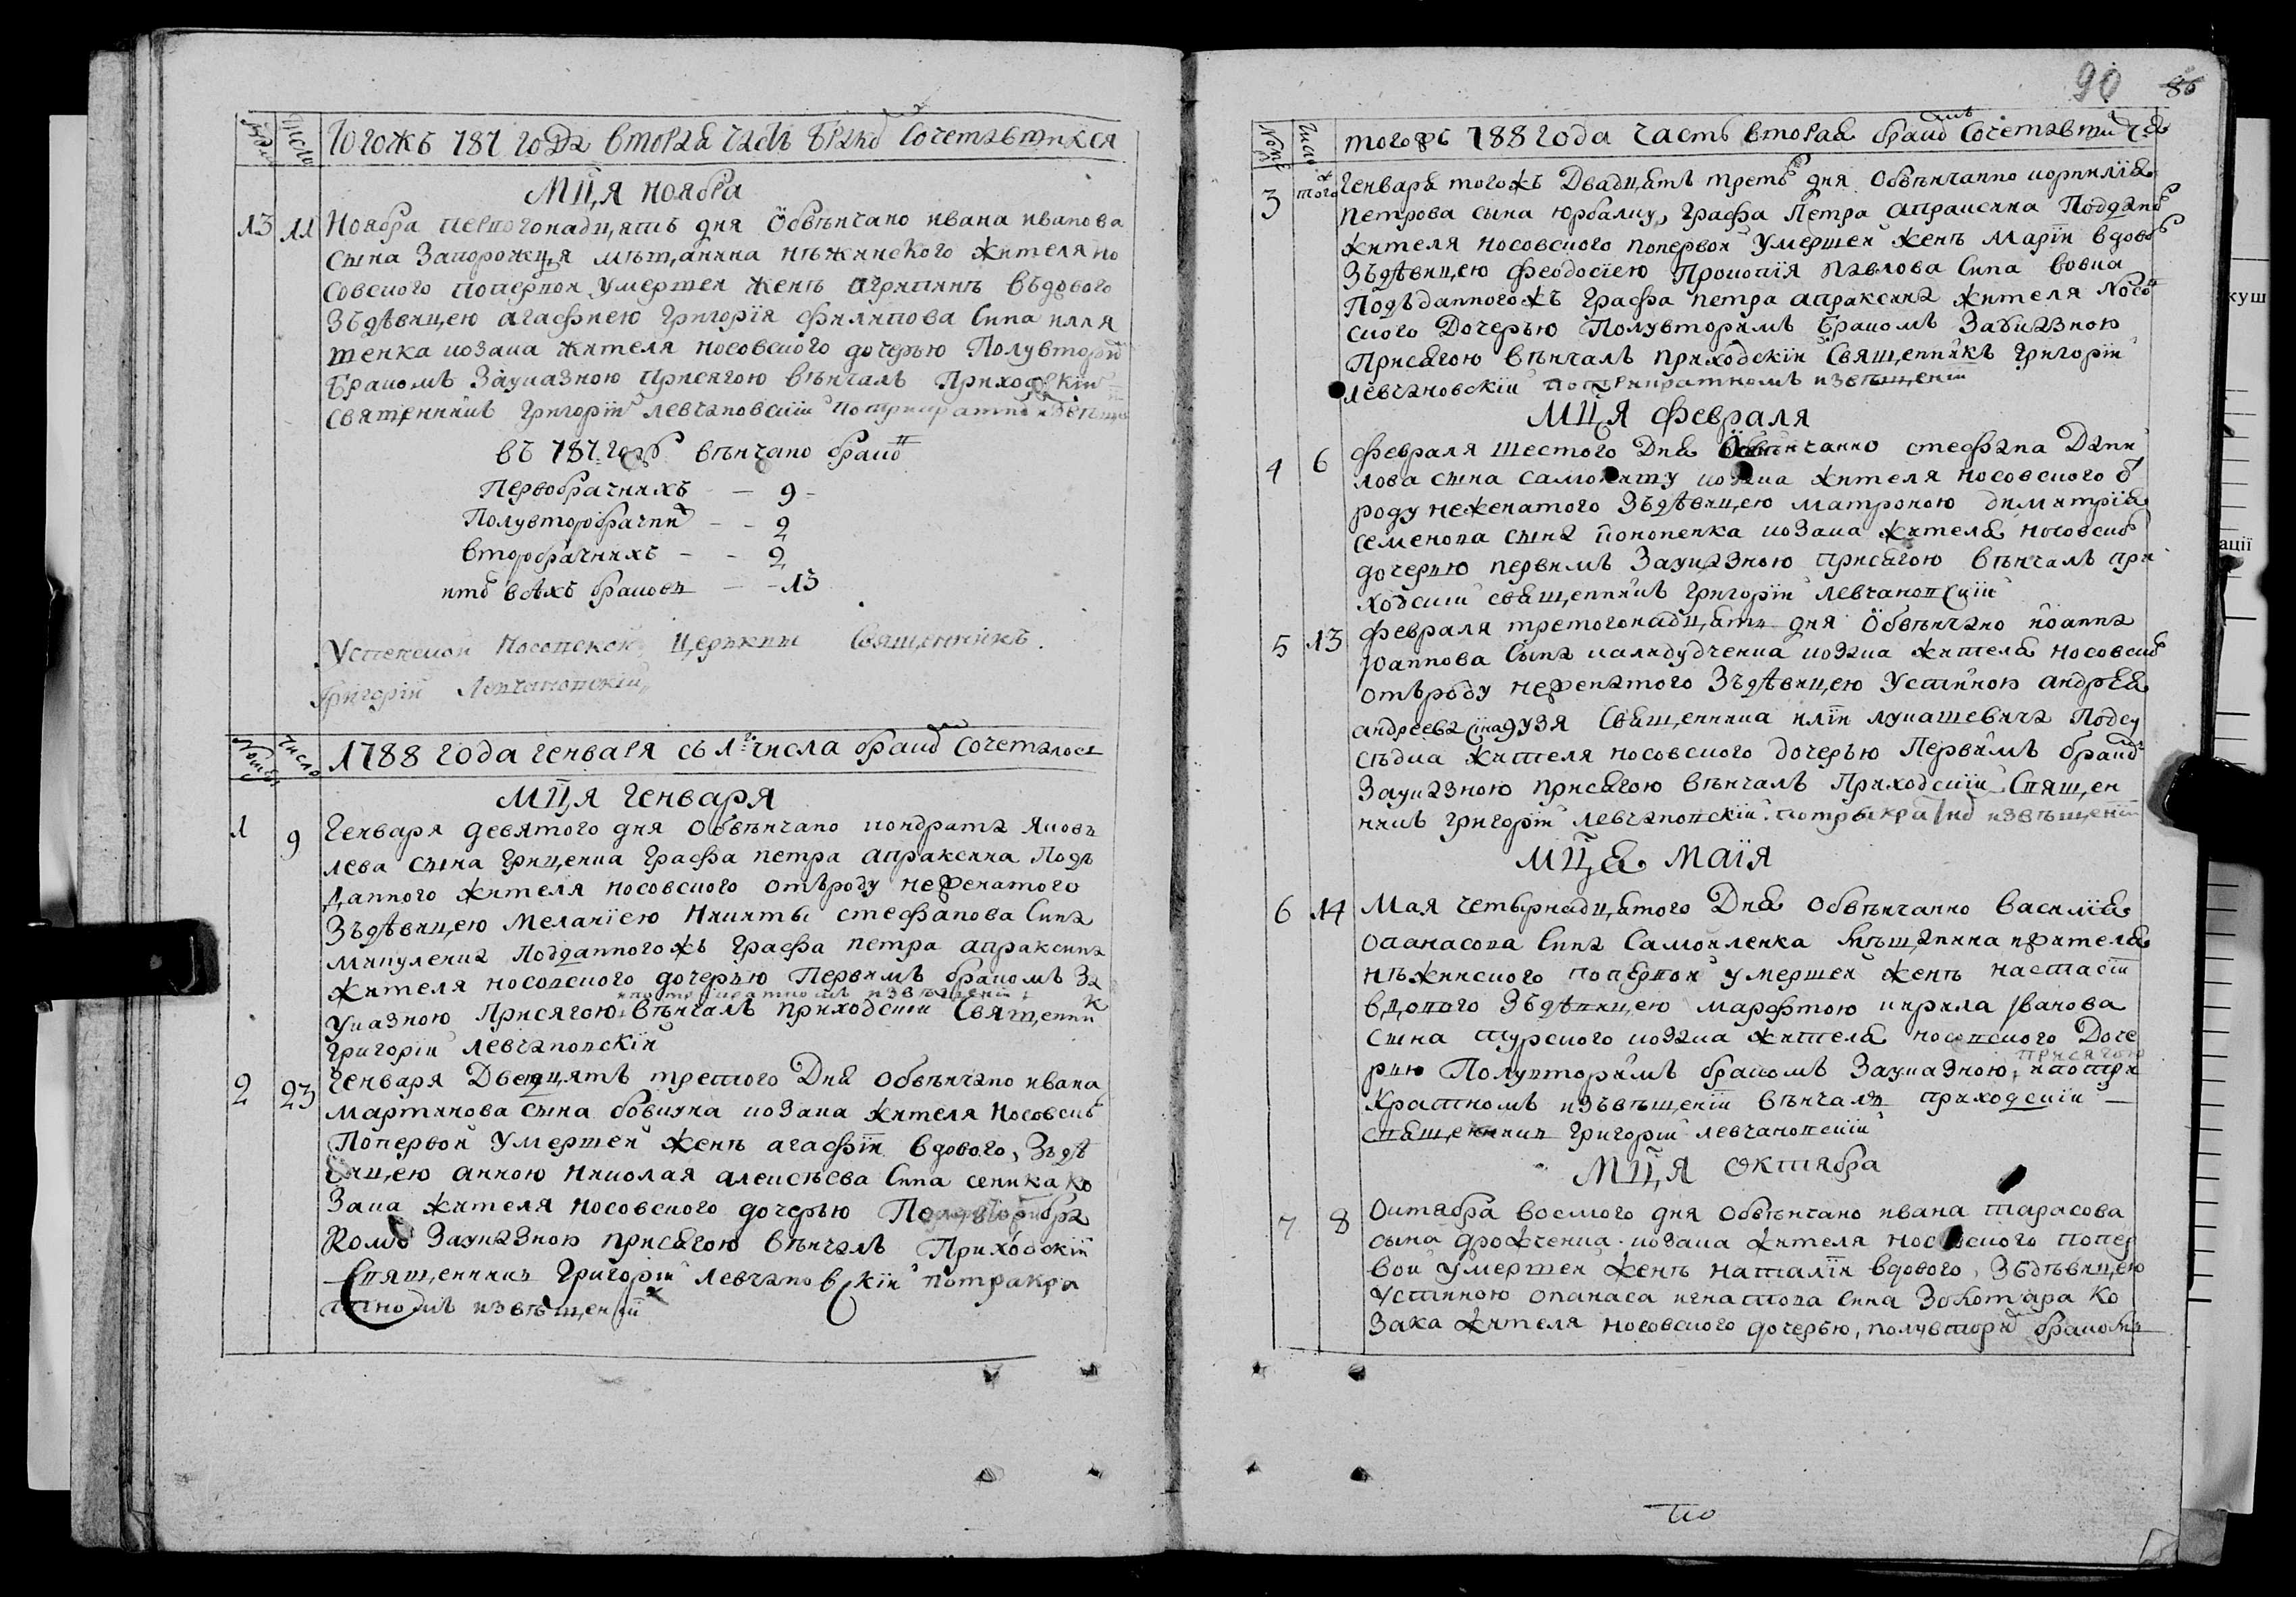 Тогожъ 787 года вторая часть браком сочетавшихся
Мця ноября
13 11 Ноября первогонадцять дня Обвѣнчано ивана иванова
сына Запорожця мѣщанина нѣжинского жителя но
совского поперпой умершей женѣ агрипинѣ въдового
Зъдѣвицею агафиею григория филипова сина илля
шенка козака жителя носовского дочерью Полувторим
Бракомъ Зауказною присягою вѣнчалъ Приходскій
священникъ григорій левчановскій потрикратном извѣще
въ 787 году вѣнчано браков
Первобрачнихъ — 9 -
Полувторобрачних - - 2
второбрачнихъ - - 2
итого всѣхъ браковъ — - 13
Успенской Носопской церькви Священникъ
Григорій Левчанопскій
Число
1788 года генваря съ 1го числа браком сочеталось
Мця генваря
1 9 Генваря девятого дня Обвѣнчано кондрата яков
лева сына гриценка графа петра апраксина Подъ
данного жителя носовского отъроду неженатого
Зъдѣвицею меланіею никиты стефанова сина
микуленка Подданногожъ графа петра апраксина
жителя носопского дочерью Первимъ бракомъ За
ипотрикратномъ извѣщеніи
указною Присягою вѣнчалъ приходскій Священник
григорій левчанопскій
2 23 Генваря Двадцять третого Дня обвѣнчано ивана
мартинова сына бовкуна козака жителя носовског
Поперпой умершей женѣ агафіи вдового, Зъдѣ
вицею анною николая алексѣева сина сеника ко
Зака жителя носовского дочерью Полувторибра
комъ Зауказною присягою вѣнчалъ Приходскій
Спященникъ григорій левчановскій потрикра
тномъ извѣщеніи
90 86
Число
тогожъ 788 года часть вторая браком сочетавшихся
3 того Генваря тогожъ Двадцять трет дня Обвѣнчанно корнилія
петрова сына юрбалку, графа Петра апраксина Поддано
жителя носовского попервой умершей женѣ Маріи вдово
Зъдѣвицею феодосіею Прокопія павлова Сина вовка
Подъданногожъ графа петра апраксина жителя Носов
ского Дочерью Полувторимъ Бракомъ Зауказною
Присягою вѣнчалъ приходскій Священникъ григорій
левчановскій потрикратномъ извѣщеніи
Мця февраля
4 6 февраля шестого Дня Обвѣнчанно стефана Дани
лова сына козака жителя носовского о
роду неженатого Зъдѣвицею матроною димитрія
семенова сына кононенка козака жителя носовско
дочерью первимъ Зауказною присягою вѣнчалъ при
ходскій священникъ григорій левчанопскій
5 13 февраля третогонадцять дня Обвѣнчано іоанна
іоаннова Сына козака жителя носовско
отъроду неженатого Зъдѣвицею устиною андрея
андреева сина Священника иліи лукашевича Подсу
сѣдка жителя носовского дочерью Первимъ браком
Зауказною присягою вѣнчалъ Приходскій Спящен
никъ григорій левчанопскій потрыкратно извѣщеніи
Мця маія
6 14 Мая четырнадцятого Дня обвѣнчанно василія
опанасова Сина Самойленка мѣщанина и жителя
нѣжинского поперпой умершей женѣ настасіи
вдопого Зъдѣпицею марфтою кирила іванова
сына турского козака жителя носопского Доче
присягою
рию Полувторимъ бракомъ Зауказною, ипотри
кратномъ изъвѣщеніи вѣнчалъ приходскій —
спященникъ григорій левчанопскій
Мця октября
7 8 Октября восмого дня обвѣнчано ивана тарасова
сына козака жителя носовского попер
вой умершей женѣ наталіи вдового, Зъдѣвицею
устиною опанаса игнатова сина Золотара ко
Зака жителя носовского дочерью, полувторим бракомъ